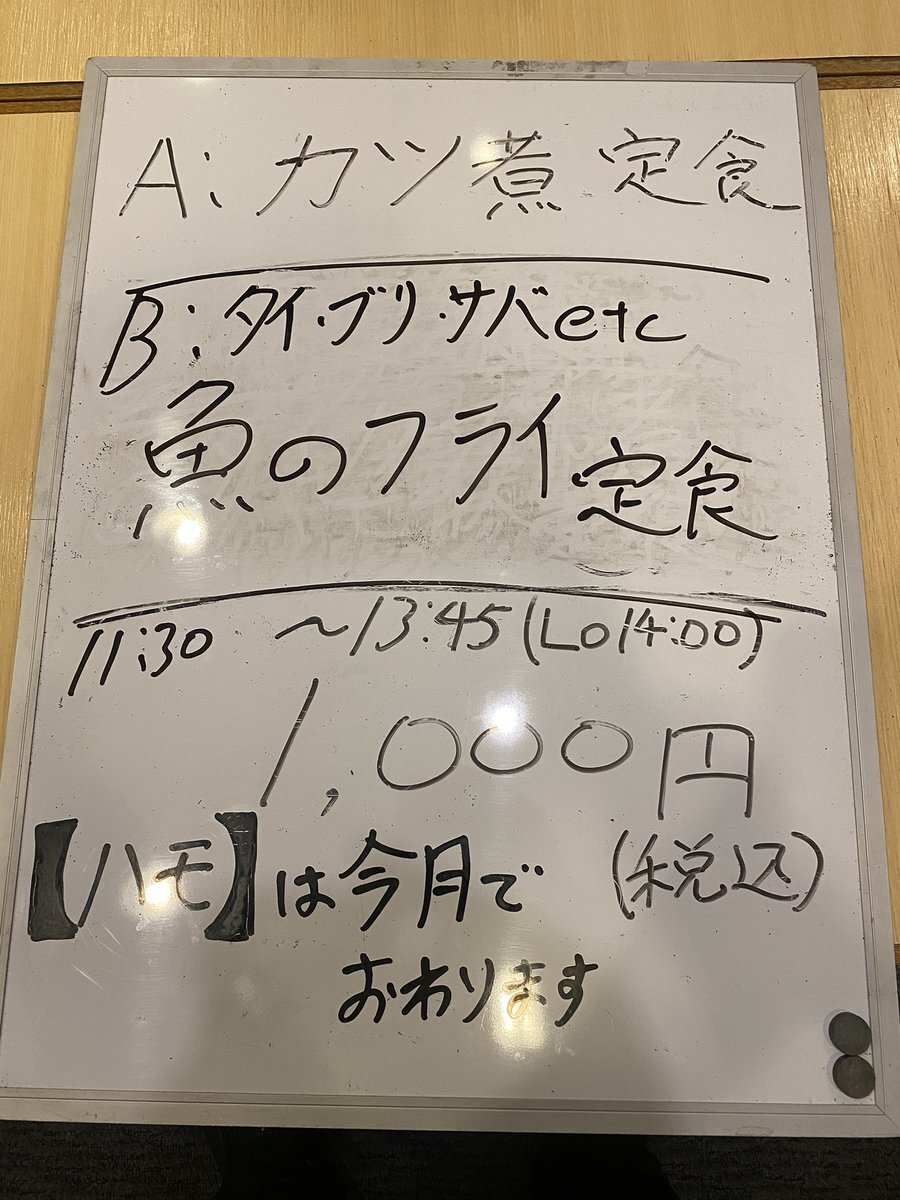 A: カツ煮 定食
B: タイ・ブリ・サバetc
魚のフライ定食
11:30 ～13:45(Lo14:00)
1,000円
(税込)
【ハモ】は今月で
おわります